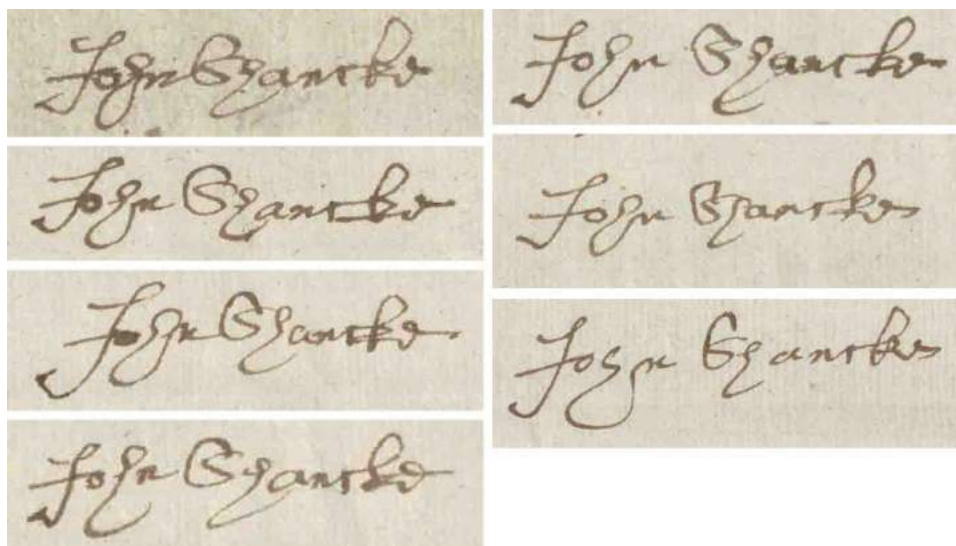 John Shancke
John Shancke
John Shancke
John Shancke
John Shancke
John Shancke
John Shancke